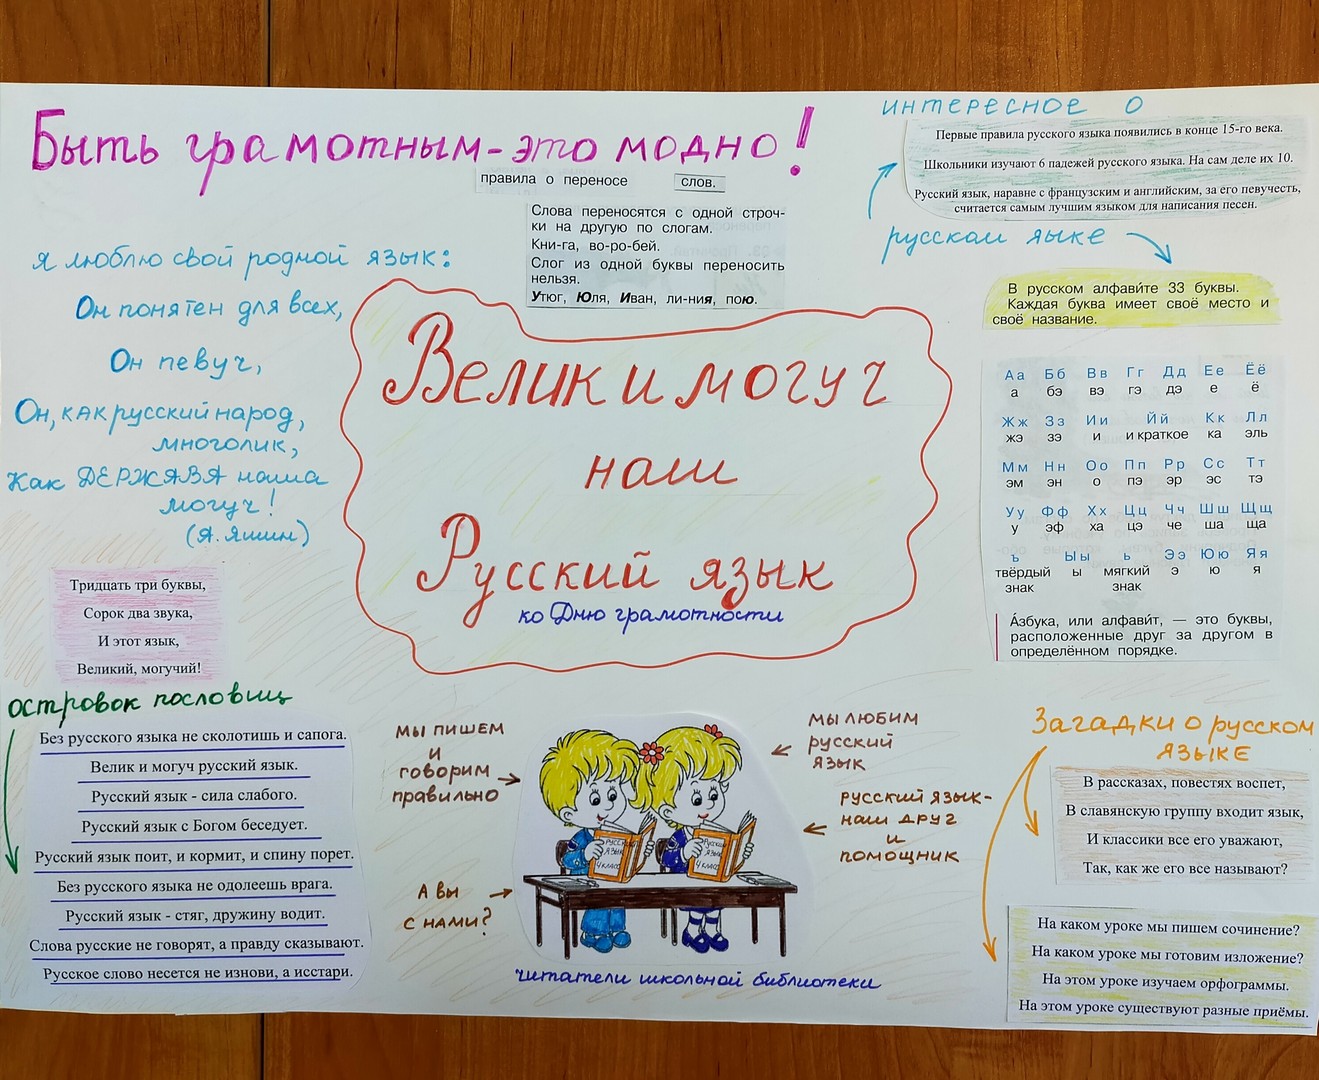 Быть грамотным-это модно!
правила о переносе слов.
Слова переносятся с одной строч-
ки на другую по слогам.
Кни-га, во-ро-бей.
Слог из одной буквы переносить
нельзя.
Утюг, Юля, Иван, ли-ния, пою.
интересное о
Первые правила русского языка появились в конце 15-го века.
Школьники изучают 6 падежей русского языка. На сам деле их 10.
Русский язык, наравне с французским и английским, за его певучесть,
считается самым лучшим языком для написания песен.
русском яыке
В русском алфавите 33 буквы.
Каждая буква имеет своё место и
своё название.
Я люблю свой родной язык:
Он понятен для всех,
Он певуч,
Он, как русский народ,
многолик,
Как ДЕРЖАВА наша
могуч!
(А. Яшин)
Велик и могуч
наш
Русский язык
ко Дню грамотности
Аа Бб Вв Гг Дд Ее Ёё
а бэ вэ гэ дэ е ё
Жж Зз Ии Йй Кк Лл
жэ зэ и и краткое ка эль
Мм Нн Оо Пп Рр Сс Тт
эм эн о пэ эр эс тэ
Уу Фф Хх Цц Чч Шш Щщ
у эф ха цэ че ша ща
ъ Ыы ь Ээ Юю Яя
твёрдый ы мягкий э ю я
знак знак
А́збука, или алфави́т, — это буквы,
расположенные друг за другом в
определённом порядке.
Тридцать три буквы,
Сорок два звука,
И этот язык,
Великий, могучий!
островок пословиц
Без русского языка не сколотишь и сапога.
Велик и могуч русский язык.
Русский язык - сила слабого.
Русский язык с Богом беседует.
Русский язык поит, и кормит, и спину порет.
Без русского языка не одолеешь врага.
Русский язык - стяг, дружину водит.
Слова русские не говорят, а правду сказывают.
Русское слово несется не изнови, а исстари.
мы пишем
и
говорим
правильно
А вы
с нами?
Русский
язык
4 класс
Русский
язык
4 класс
мы любим
русский
язык
русский язык-
наш друг
и
помощник
читатели школьной библиотеки
Загадки о русском
языке
В рассказах, повестях воспет,
В славянскую группу входит язык,
И классики все его уважают,
Так, как же его все называют?
На каком уроке мы пишем сочинение?
На каком уроке мы готовим изложение?
На этом уроке изучаем орфограммы.
На этом уроке существуют разные приёмы.